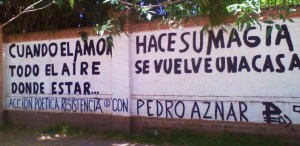 CUANDO EL AMOR
TODO EL AIRE
DONDE ESTAR...
ACCION POETICA RESISTENCIA CON
HACE SU MAGIA
SE VUELVE UNA CASA
PEDRO AZNAR